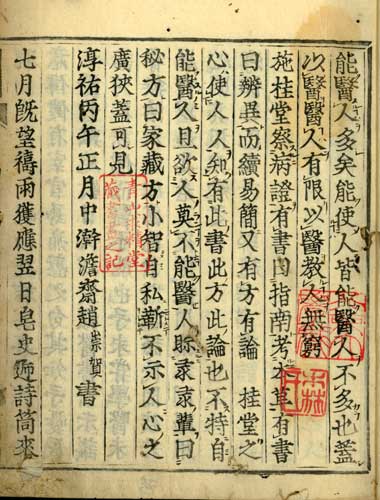 能醫人多矣能使人皆能醫人不多也蓋
以醫醫人有限以醫教人無窮
施桂堂察病證有書曰指南考本草有書
曰辨異而續易簡又有方有論 桂堂之
心使人人知有此書此方此論也不特自
能醫人且欲人莫不能醫人眎輩曰
秘方曰家藏方小智自私勒不示人心之
廣狹蓋可見
淳祐丙午正月中澣澹齋趙崇賀書
七月旣望禱雨獲應翌日皂吏師詩筒來
青山求精堂
藏書畫之記
森